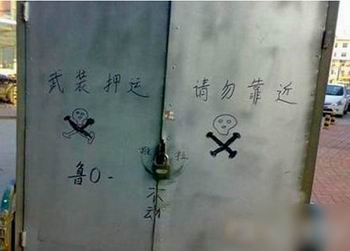 武装押运
请勿靠近
推 拉
不
动
鲁O-